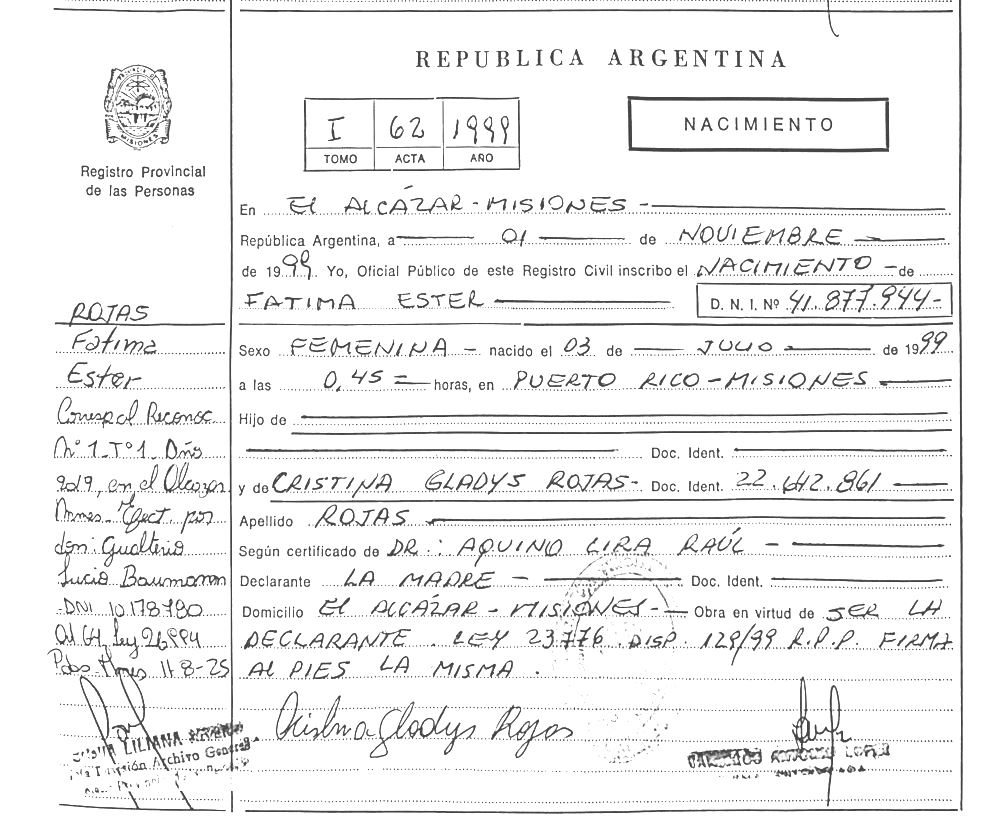 REPUBLICA ARGENTINA
I 62 1999
TOMO ACTA AÑO
NACIMIENTO
PROVINCIA DE
MISIONES
Registro Provincial
de las Personas
En EL ALCÁZAR - MISIONES -
República Argentina, a 01 de NOVIEMBRE
de 1999. Yo, Oficial Público de este Registro Civil inscribo el NACIMIENTO - de
FATIMA ESTER D. N. I. Nº 41.877.944-
Sexo FEMENINA - nacido el 03 de JULIO de 1999
a las 0,45 = horas, en PUERTO RICO - MISIONES
Hijo de
Doc. Ident.
y de CRISTINA GLADYS ROJAS- Doc. Ident. 22.642.861
Apellido ROJAS
Según certificado de DR.: AQUINO LIRA RAÚL -
Declarante LA MADRE - Doc. Ident.
Domicilio EL ALCÁZAR - MISIONES - Obra en virtud de SER LA
DECLARANTE . LEY 23776 DISP. 129/99 R.P.P. FIRMA
AL PIES LA MISMA .
Cristina Gladys Rojas
ROJAS
Fatima
Ester
Corresp al Reconoc
Nº 1 - Tº 1 - Año
2019, en el Alcazar
Mnes - Efect. por
don: Gualterio
Lucio Baumann
- DNI 10178780
Ley 26994
Pdas - Mnes 11-8-25
LILIANA
Archivo General